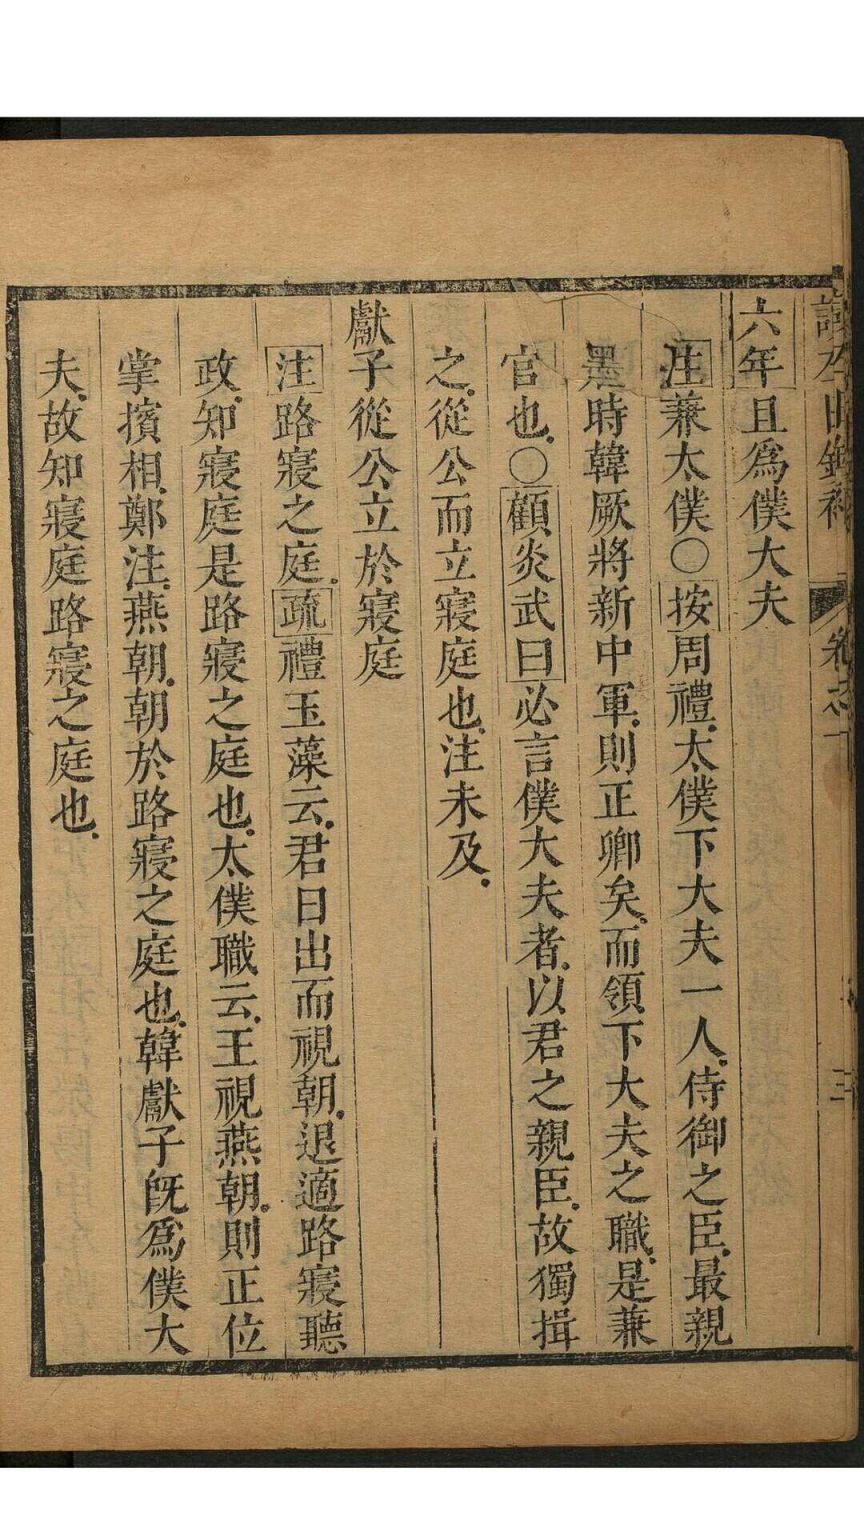 六年且為僕大夫
注兼太僕〇按周禮太僕下大夫一人侍御之臣最親
墨時韓厥將新中軍則正卿矣而領下大夫之職是兼
官也〇顧炎武曰必言僕大夫者以君之親臣故獨揖
之從公而立寢庭也注未及
獻子從公立於寢庭
注路寢之庭疏禮玉藻云君日出而視朝退適路寢聽
政知寢庭是路寢之庭也太僕職云王視燕朝則正位
掌擯相鄭注燕朝朝於路寢之庭也韓獻子旣為僕大
夫故知寢庭路寢之庭也